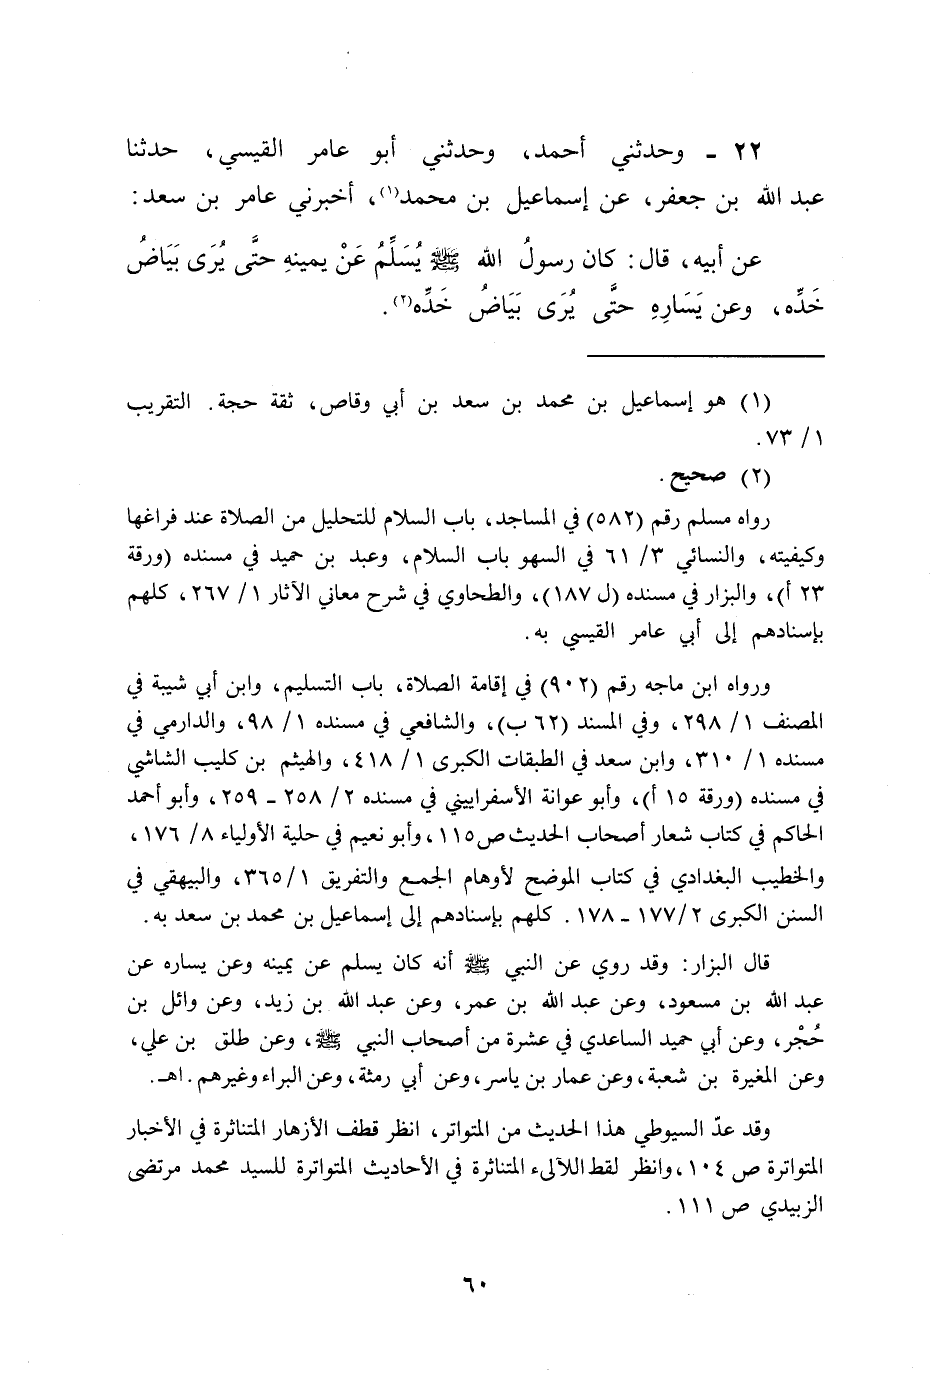 ٢٢ ـ وحدثني أحمد، وحدثني أبو عامر القيسي، حدثنا
عبد الله بن جعفر، عن إسماعيل بن محمد(١)، أخبرني عامر بن سعد:
عن أبيه، قال: كان رسولُ الله ﷺ يُسَلِّمُ عَنْ يمينهِ حتَّى يُرَى بَيَاضُ
خَدِّه، وعن يَسَارِهِ حتَّى يُرَى بَيَاضُ خَدِّه(٢).
(١) هو إسماعيل بن محمد بن سعد بن أبي وقاص، ثقة حجة. التقريب
١/ ٧٣.
(٢) صحيح.
رواه مسلم رقم (٥٨٢) في المساجد، باب السلام للتحليل من الصلاة عند فراغها
وكيفيته، والنسائي ٣/ ٦١ في السهو باب السلام، وعبد بن حميد في مسنده (ورقة
٢٣ أ)، والبزار في مسنده (ل ١٨٧)، والطحاوي في شرح معاني الآثار ١/ ٢٦٧، كلهم
بإسنادهم إلى أبي عامر القيسي به.
ورواه ابن ماجه رقم (٩٠٢) في إقامة الصلاة، باب التسليم، وابن أبي شيبة في
المصنف ١/ ٢٩٨، وفي المسند (٦٢ ب)، والشافعي في مسنده ١/ ٩٨، والدارمي في
مسنده ١/ ٣١٠، وابن سعد في الطبقات الكبرى ١/ ٤١٨، والهيثم بن كليب الشاشي
في مسنده (ورقة ١٥ أ)، وأبو عوانة الأسفراييني في مسنده ٢/ ٢٥٨ ـ ٢٥٩، وأبو أحمد
الحاكم في كتاب شعار أصحاب الحديث ص١١٥، وأبو نعيم في حلية الأولياء ٨/ ١٧٦،
والخطيب البغدادي في كتاب الموضح لأوهام الجمع والتفريق ١/ ٣٦٥، والبيهقي في
السنن الكبرى ٢/ ١٧٧ ـ ١٧٨. كلهم بإسنادهم إلى إسماعيل بن محمد بن سعد به.
قال البزار: وقد روي عن النبي ﷺ أنه كان يسلم عن يمينه وعن يساره عن
عبد الله بن مسعود، وعن عبد الله بن عمر، وعن عبد الله بن زيد، وعن وائل بن
حُجْر، وعن أبي حميد الساعدي في عشرة من أصحاب النبي ﷺ، وعن طلق بن علي،
وعن المغيرة بن شعبة، وعن عمار بن ياسر، وعن أبي رمثة، وعن البراء وغيرهم. اهـ.
وقد عدّ السيوطي هذا الحديث من المتواتر، انظر قطف الأزهار المتناثرة في الأخبار
المتواترة ص ١٠٤، وانظر لقط اللآلىء المتناثرة في الأحاديث المتواترة للسيد محمد مرتضى
الزبيدي ص ١١١.
٦٠